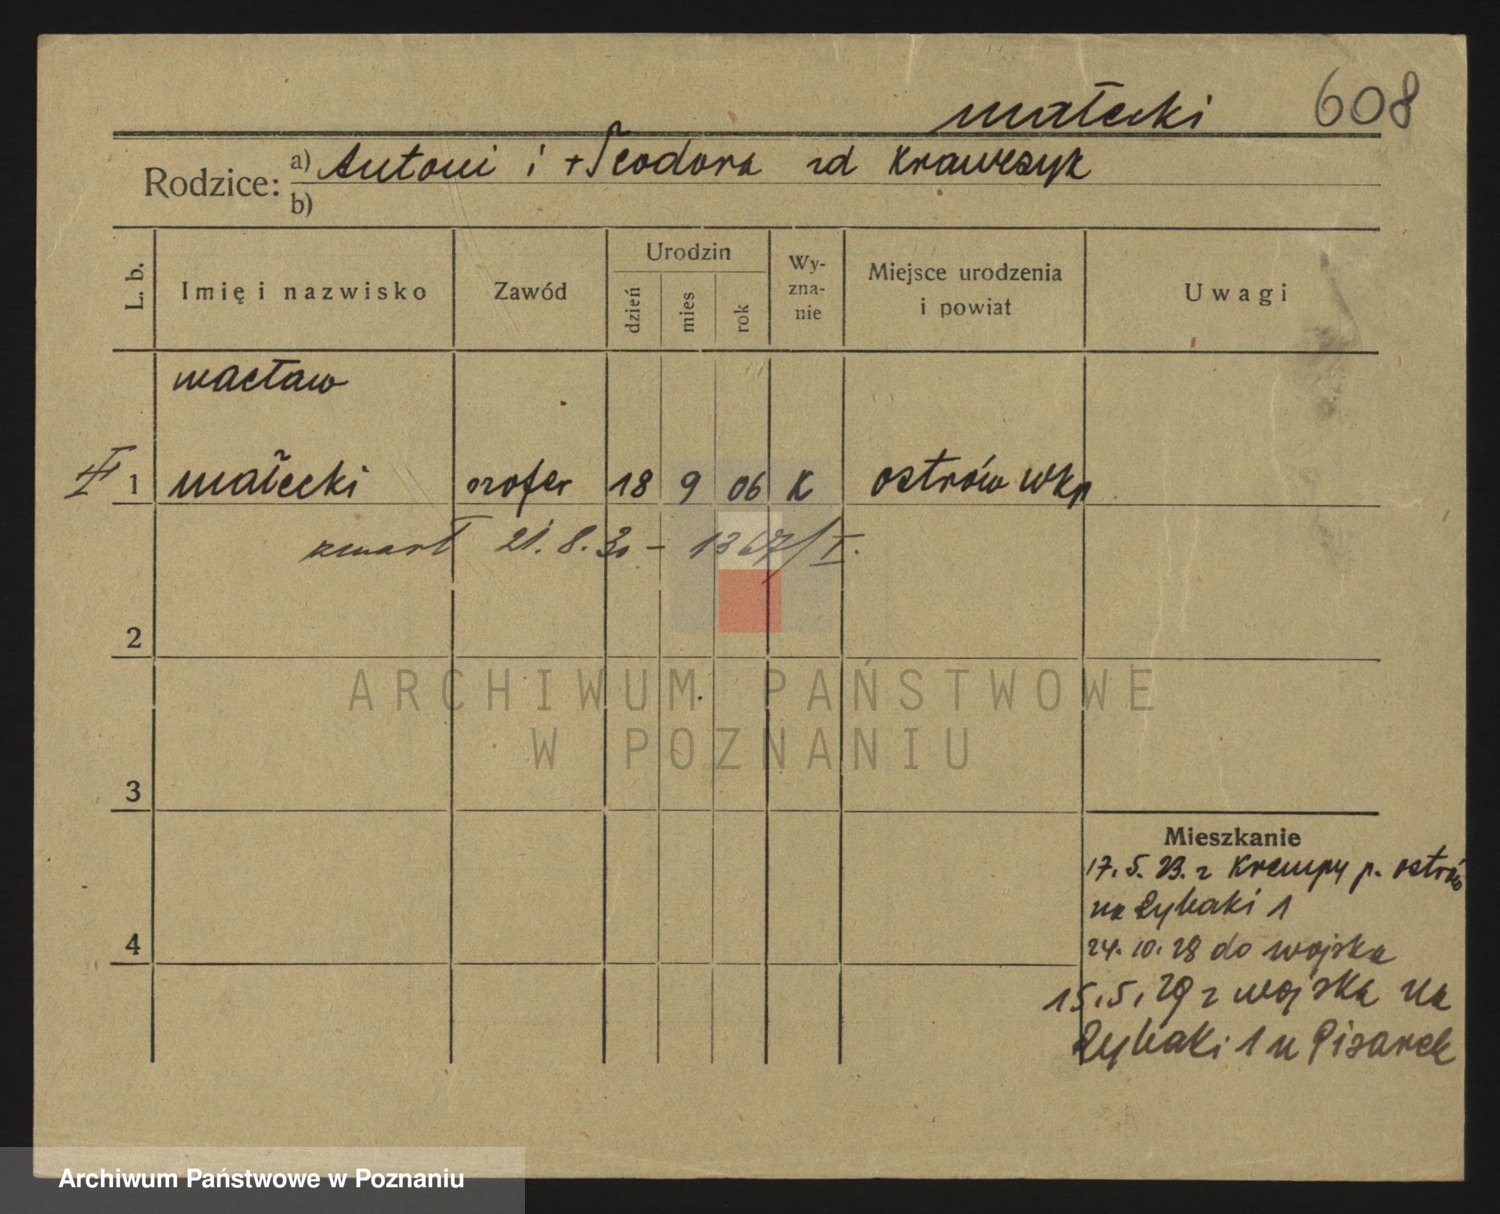 Małecki 608
Rodzice: a) Antoni i + Teodora zd Krawczyk
b)
L. b. Imię i nazwisko Zawód Urodzin dzień mies rok Wy-zna-nie Miejsce urodzenia i powiat Uwagi
Wacław
1 Małecki szofer 18 9 06 K Ostrów Wkp
zmarł 21.8.30 – 1367/I.
2
ARCHIWUM PAŃSTWOWE
W POZNANIU
3
Mieszkanie
17.5.23. z Krempy p. Ostrów
na Rybaki 1
4
24.10.28 do wojska
15.5.29 z wojska na
Rybaki 1 u Pisarek
Archiwum Państwowe w Poznaniu